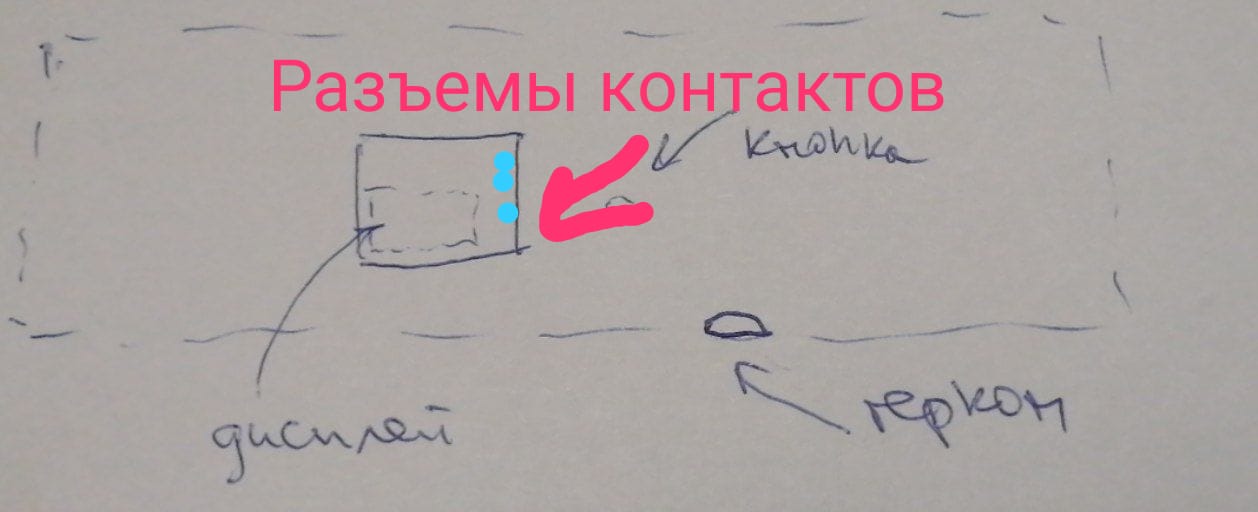 Разъемы контактов
кнопка
дисплей
геркон